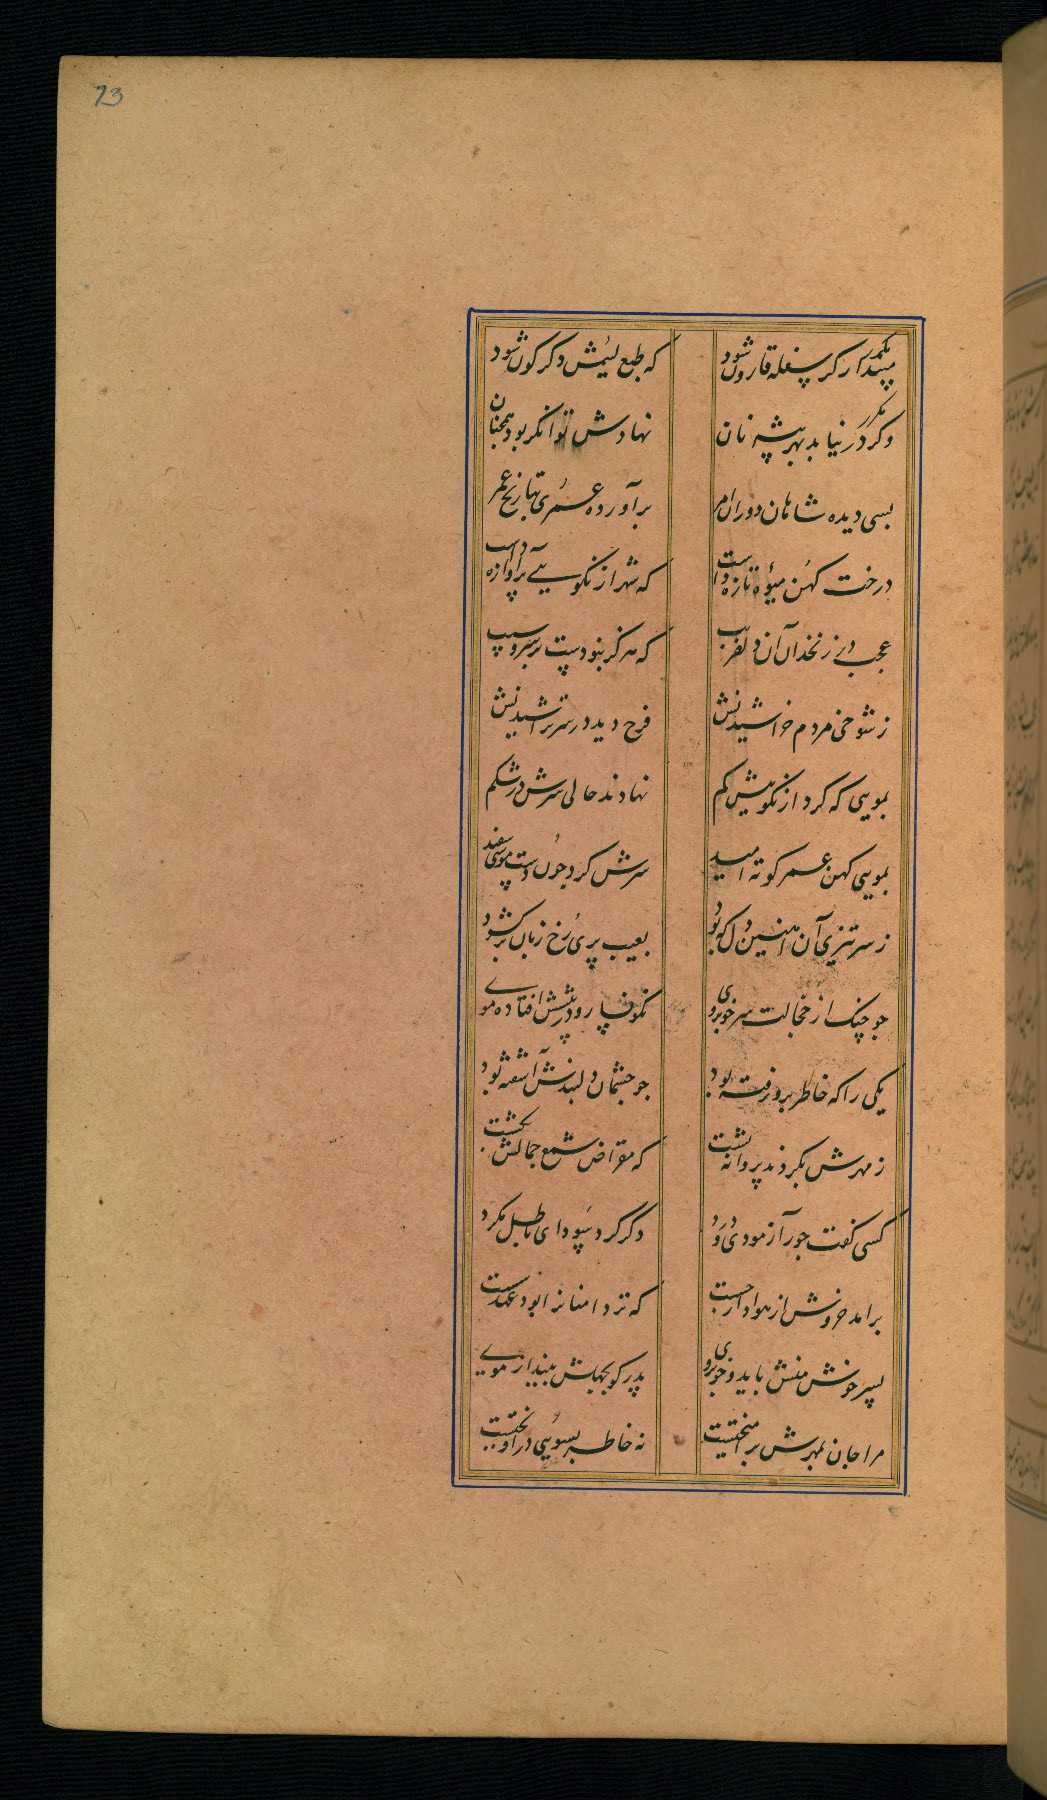 73
مپندار کر سفله قارون شود که طبع لئیمش دکر کون شود
وکر در نیابد بهر پیشه نان نهادش توانکر بود همچنان
بسی دیده شاهان و دوران و امر برآورده عمری بتاریخ عمر
درخت کهن میوهٔ تازه داشت که شهر از نکویی پر آوازه داشت
عجب در زنخدان آن دلفریب که هرکز نبودست بر سرو سیب
ز شوخی و مردم خراشیدنش فرح دید در سر تراشیدنش
بمویی که کرد از نکوییش کم نهادند حالی سرش در شکم
بموسی کهن عمر کوته امید سرش کرد جون دست موسی سفید
ز سر تیزی آن آهنین دل که بود بعیب پری رخ زبان برکشود
جو جنک از خجالت سر خوبروی نکونسار و در پیشش افتاده موی
یکی را که خاطر برو رفته بود جو جشمان دلبندش آشفته بود
ز مهرش بکردند پروانه پشت که مقراض شمع جمالش بکشت
کسی کفت جور آزمودی و درد دکر کرد سودای باطل مکرد
برآمد خروش از هوادار جست که تر دامنانرا بود عهد سست
پسر خوش منش باید و خوبروی پدر کو بجهلش بینداز موی
مرا جان بمهرش برآمیختست نه خاطر بمویی درآویختست